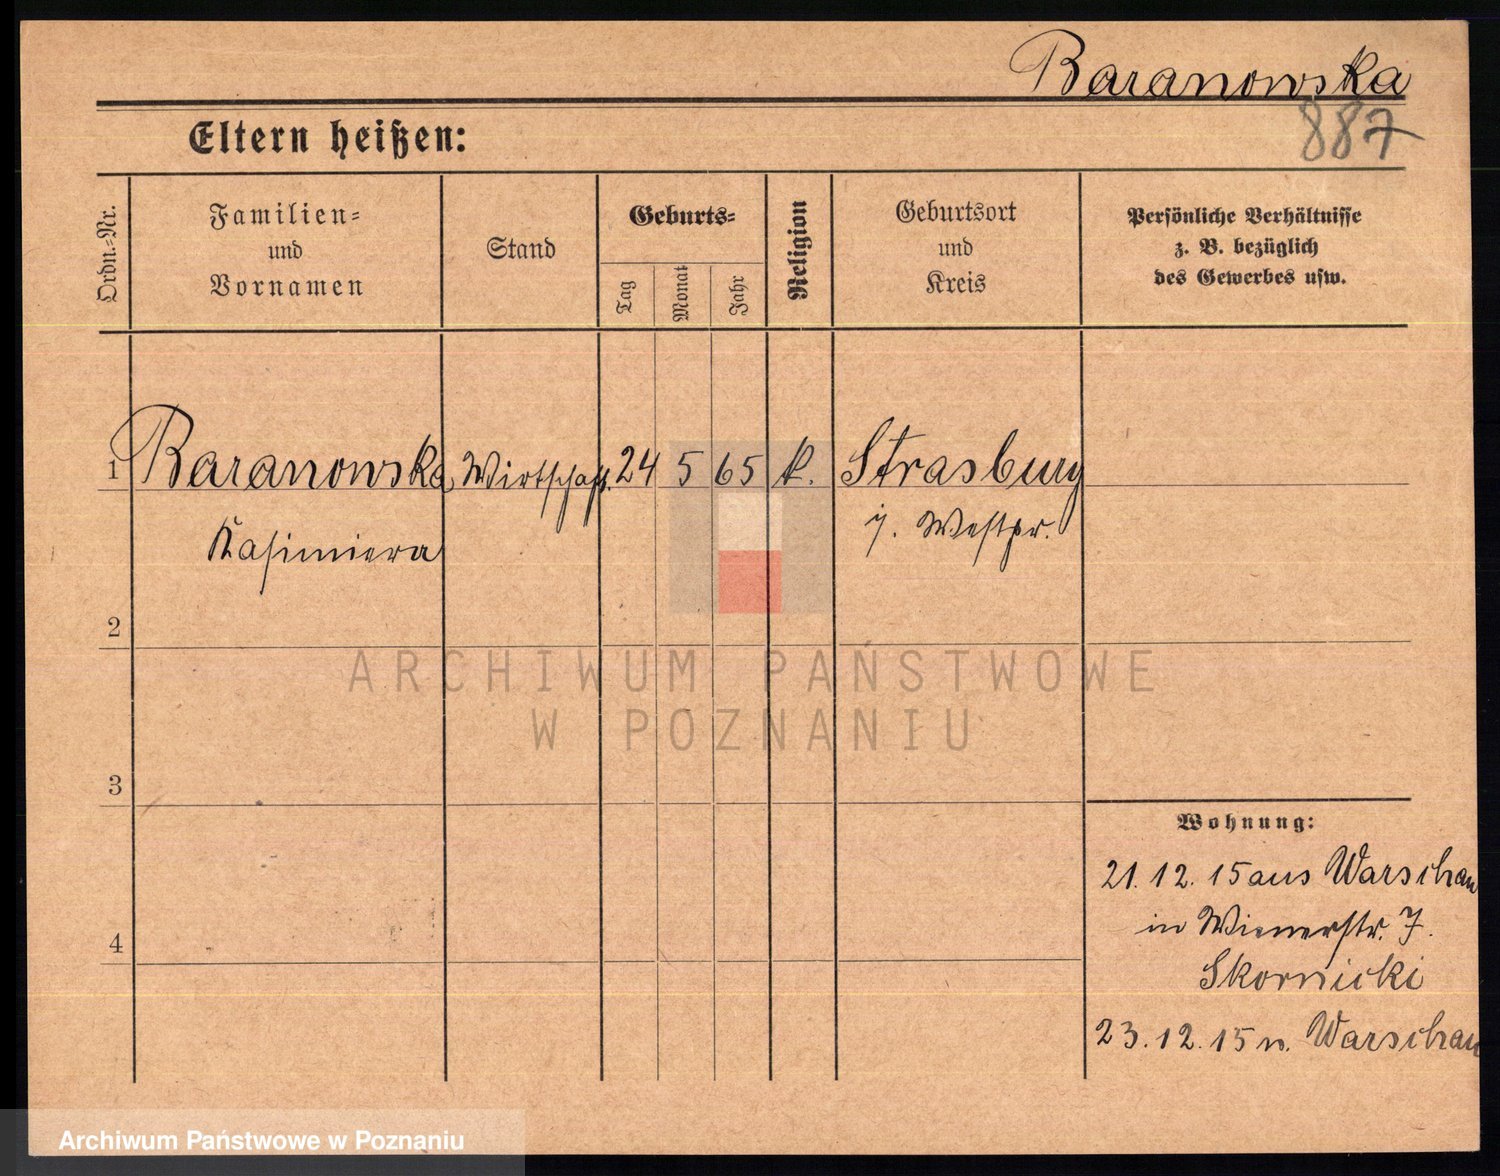 Baranowska
887
Eltern heißen:
Ordn.-Nr.
Familien-
und
Vornamen
Stand
Geburts-
Tag
Monat
Jahr
Religion
Geburtsort
und
Kreis
Persönliche Verhältnisse
z. B. bezüglich
des Gewerbes usw.
1 Baranowska Wirtschaft. 24 5 65 k. Strasburg
Kasimiera i. Westpr.
2
ARCHIWUM PAŃSTWOWE
W POZNANIU
3
Wohnung:
21.12.15 aus Warschau
in Wienerstr. 7.
4
Skornicki
23.12.15 n. Warschau
Archiwum Państwowe w Poznaniu